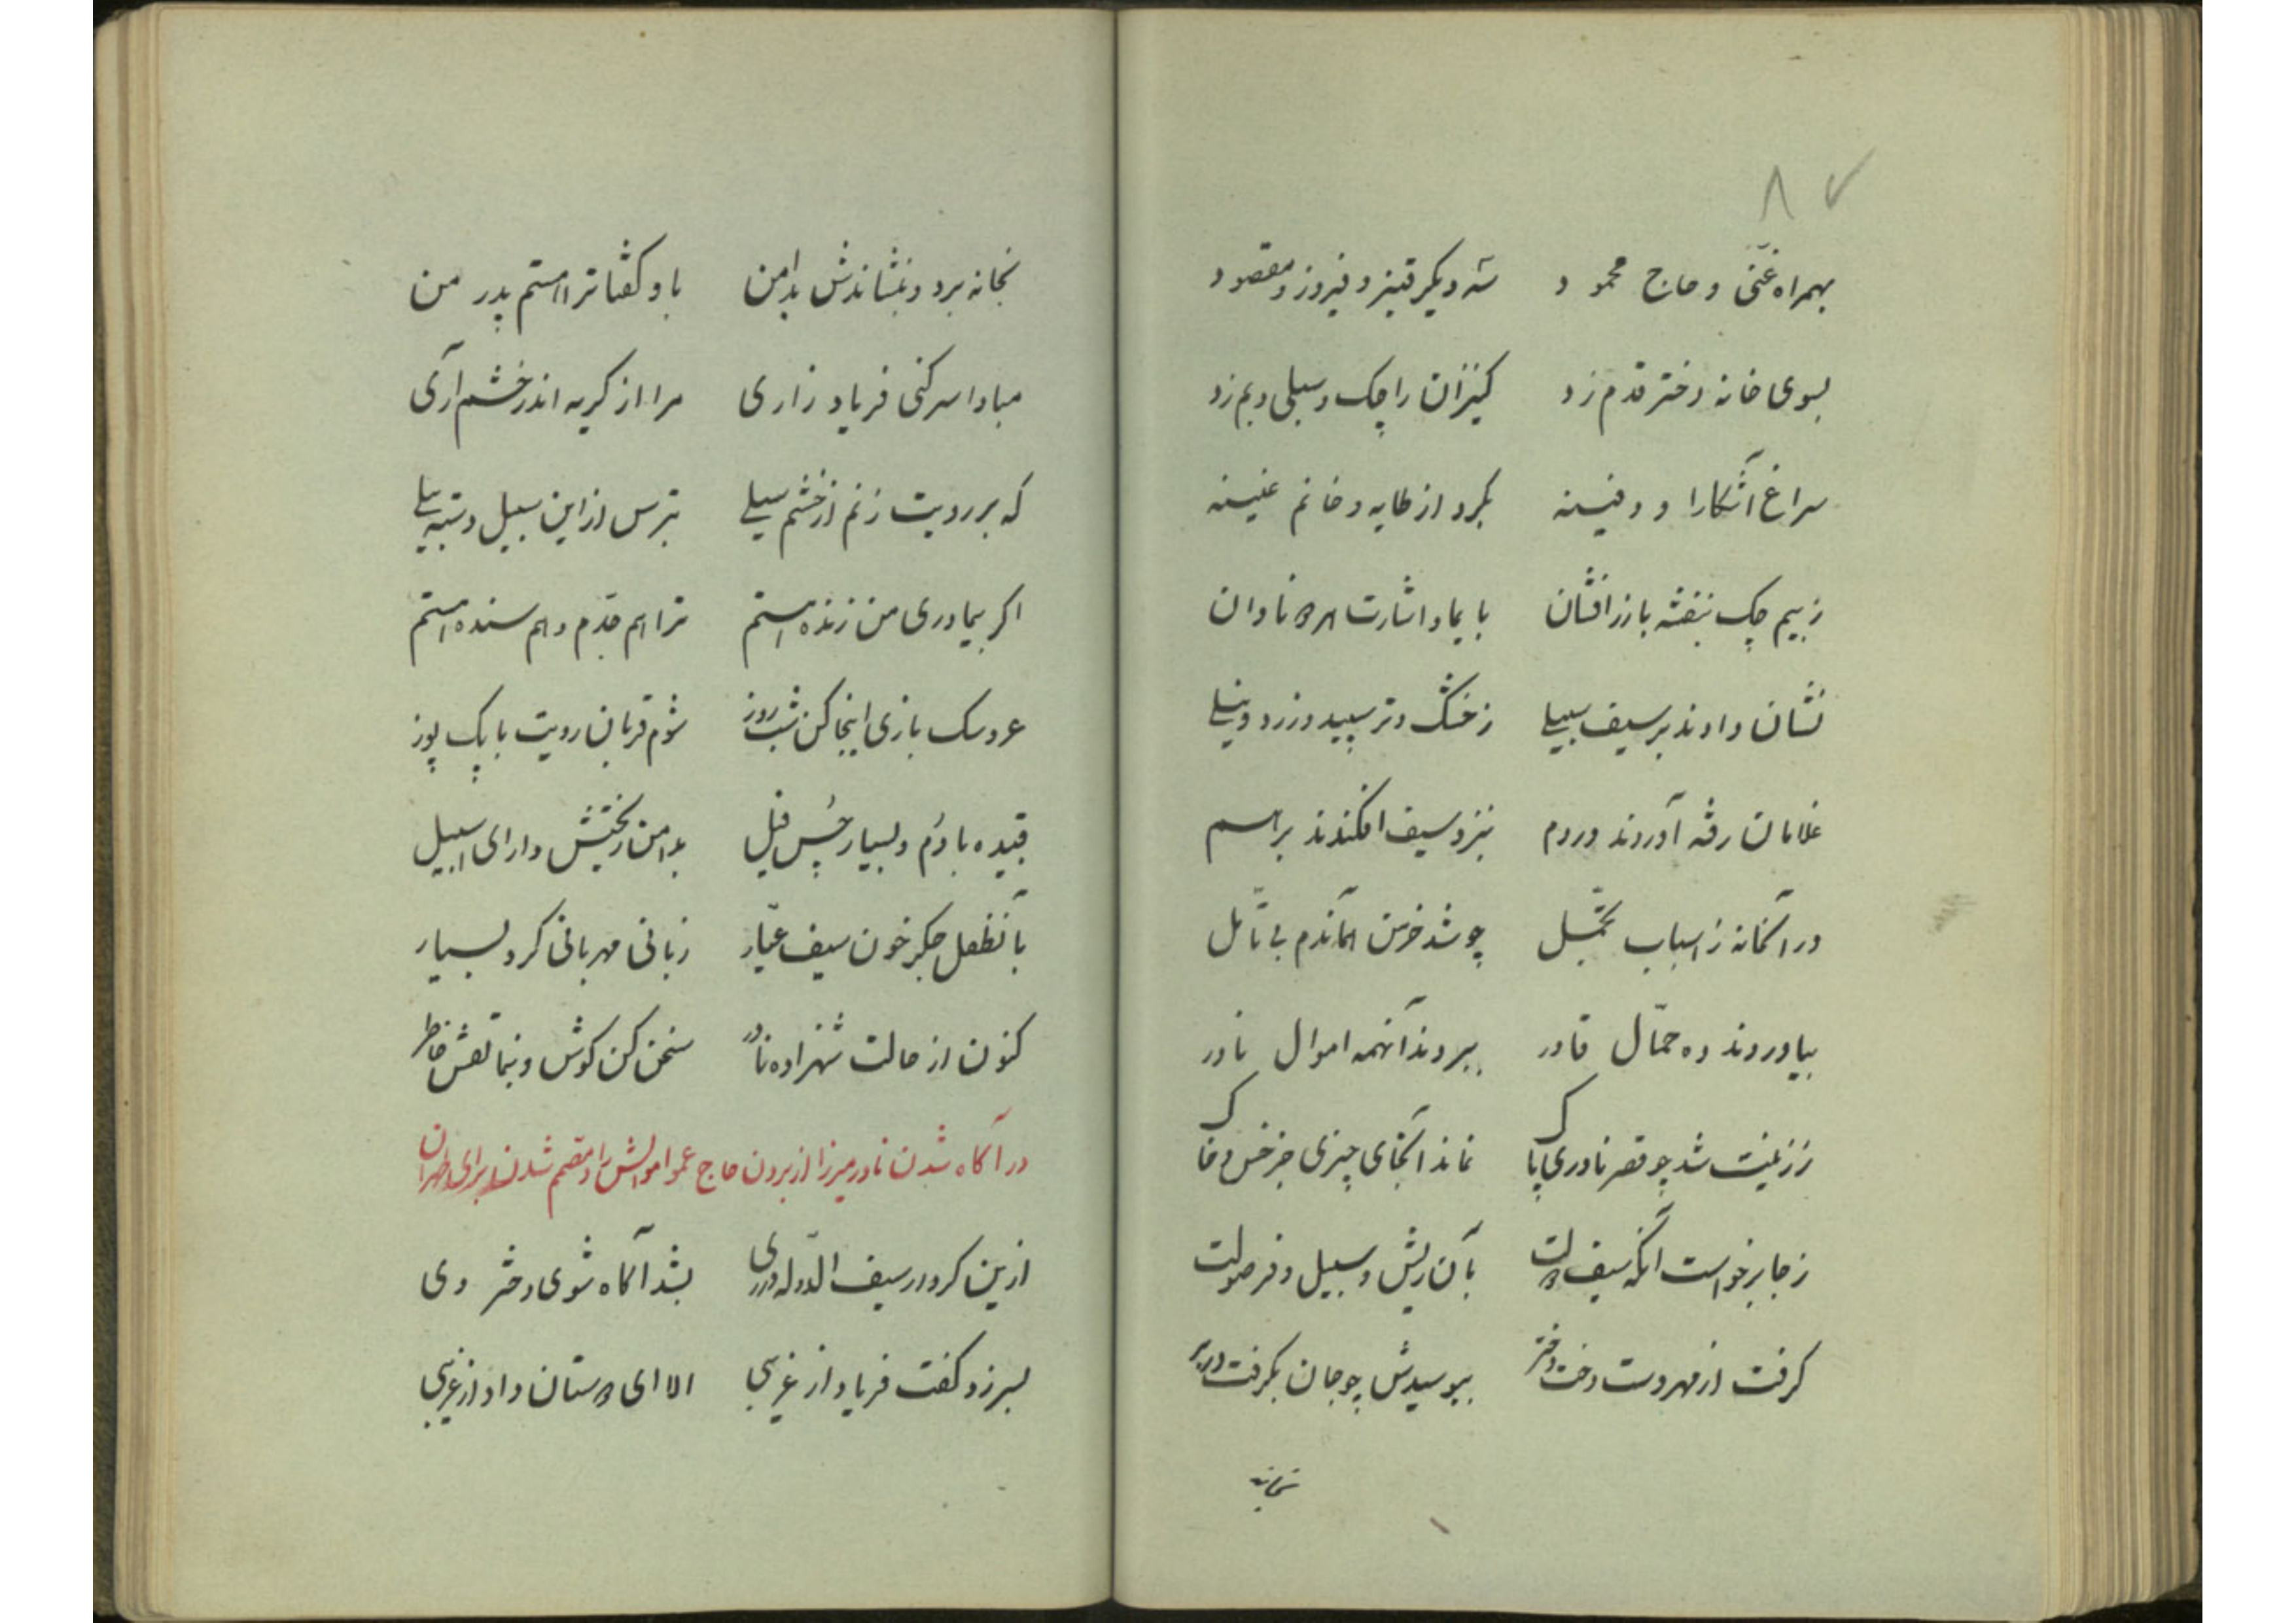 ۸۷
بهمراه غنی و حاج محمود سه دیگر قنبر و فیروز و مقصود
بسوی خانه دختر قدم زد کنیزان را چک و سیلی و بم زد
سراغ آشکارا و دفینه بکرد از طایه و خانم
ز بیم چک بنفشه با زرافشان با یما و اشارت نادان
نشان دادند بر سیف سبیلی ز خشک و تر سپید و زرد و نیلی
غلامان رفته آوردند در دم بنزد سیف افکندند بر هم
در آنخانه ز اسباب تجمل چو شد خرمن هماندم بی تأمل
بیاوردند ده حمّال قادر ببردند آنهمه اموال نادر
ز زینت شد چو قصر نادری پاک نماند آنجای چیزی جز خس و خاک
ز جا برخواست آنگه سیف دولت بآن ریش و سبیل و فر صولت
گرفت از مهر دست دخت دختر ببوسیدش چو جان بگرفت در بر
بخانه
بخانه برد و بنشاندش بدامن باو گفتا ترا هستم پدر من
مبادا سر کنی فریاد زاری مرا از گریه اندر خشم آری
که بر رویت زنم از خشم سیلی بترس از این سبیل
اگر بیمادری من زنده هستم ترا هم جدم و هم بنده هستم
عروسک بازی اینجا کن شب روز شوم قربان رویت با پک پوز
بادم و بسیار چس فیل بدامن ریختش دارای سبیل
بآنطفل جگر خون سیف عیّار زبانی مهربانی کرد بسیار
کنون از حالت شهزاده نادر سخن کن گوش و بنما نقش خاطر
در آگاه شدن نادر میرزا از بردن حاج عمو اموالش را و مصمم شدن او برای طهران
ازین کردار سیف الدوله ری بشد آگاه شوی دختر وی
بسر زد گفت فریاد از غریبی الا ای دوستان داد از غریبی